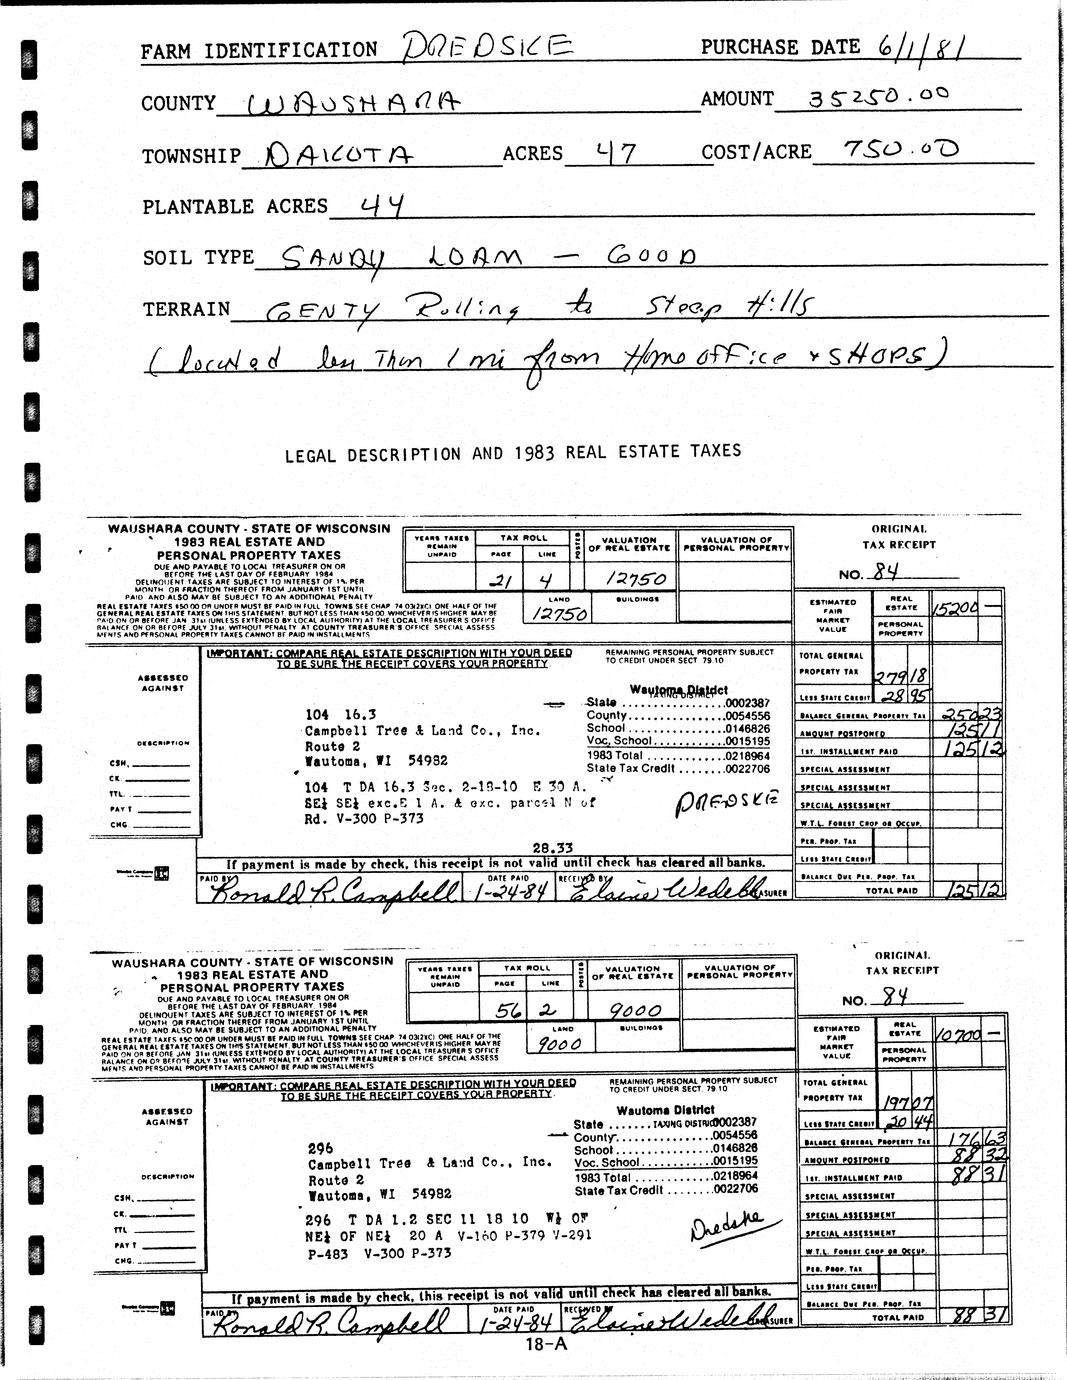 FARM IDENTIFICATION DREDSKE PURCHASE DATE 6/1/81
COUNTY WAUSHARA AMOUNT 35250.00
TOWNSHIP DAKOTA ACRES 47 COST/ACRE 750.00
PLANTABLE ACRES 44
SOIL TYPE SANDY LOAM - GOOD
TERRAIN GENTY Rolling to Steep Hills
(located less Than 1 mi from Home office + SHOPS)
LEGAL DESCRIPTION AND 1983 REAL ESTATE TAXES
WAUSHARA COUNTY - STATE OF WISCONSIN
1983 REAL ESTATE AND
PERSONAL PROPERTY TAXES
DUE AND PAYABLE TO LOCAL TREASURER ON OR
BEFORE THE LAST DAY OF FEBRUARY 1984
DELINQUENT TAXES ARE SUBJECT TO INTEREST OF 1% PER
MONTH OR FRACTION THEREOF FROM JANUARY 1ST UNTIL
PAID AND ALSO MAY BE SUBJECT TO AN ADDITIONAL PENALTY
REAL ESTATE TAXES $50.00 OR UNDER MUST BE PAID IN FULL TOWNS SEE CHAP 74 03(2)(C) ONE HALF OF THE
GENERAL REAL ESTATE TAXES ON THIS STATEMENT, BUT NOT LESS THAN $50.00, WHICHEVER IS HIGHER MAY BE
PAID ON OR BEFORE JAN 31st (UNLESS EXTENDED BY LOCAL AUTHORITY) AT THE LOCAL TREASURER'S OFFICE
BALANCE ON OR BEFORE JULY 31st, WITHOUT PENALTY AT COUNTY TREASURER'S OFFICE SPECIAL ASSESS
MENTS AND PERSONAL PROPERTY TAXES CANNOT BE PAID IN INSTALLMENTS
YEARS TAXES REMAIN UNPAID
TAX ROLL
PAGE LINE
21 4
POSTED
VALUATION OF REAL ESTATE
12750
LAND
12750
BUILDINGS
VALUATION OF PERSONAL PROPERTY
ORIGINAL
TAX RECEIPT
NO. 84
ESTIMATED FAIR MARKET VALUE
REAL ESTATE 15200 —
PERSONAL PROPERTY
IMPORTANT: COMPARE REAL ESTATE DESCRIPTION WITH YOUR DEED
TO BE SURE THE RECEIPT COVERS YOUR PROPERTY.
REMAINING PERSONAL PROPERTY SUBJECT
TO CREDIT UNDER SECT 79.10
ASSESSED
AGAINST
DESCRIPTION
CSH.
CK.
TTL.
PAY'T
CHG.
104 16.3
Campbell Tree & Land Co., Inc.
Route 2
Wautoma, WI 54982
104 T DA 16.3 Sec. 2-18-10 E 30 A.
SE¼ SE¼ exc.E 1 A. & exc. parcel N of
Rd. V-300 P-373
28.33
Wautoma District
TAXING DISTRICT
State .0002387
County .0054556
School .0146826
Voc. School .0015195
1983 Total .0218964
State Tax Credit .0022706
DREDSKE
TOTAL GENERAL
PROPERTY TAX 279 18
LESS STATE CREDIT 28 95
BALANCE GENERAL PROPERTY TAX 250 23
AMOUNT POSTPONED 125 11
1ST. INSTALLMENT PAID 125 12
SPECIAL ASSESSMENT
SPECIAL ASSESSMENT
SPECIAL ASSESSMENT
W.T.L. FOREST CROP OR OCCUP.
PER. PROP. TAX
LESS STATE CREDIT
BALANCE DUE PER. PROP. TAX
TOTAL PAID 125 12
If payment is made by check, this receipt is not valid until check has cleared all banks.
PAID BY Ronald R. Campbell DATE PAID 1-24-84 RECEIVED BY Elaine Wedell TREASURER
WAUSHARA COUNTY - STATE OF WISCONSIN
1983 REAL ESTATE AND
PERSONAL PROPERTY TAXES
DUE AND PAYABLE TO LOCAL TREASURER ON OR
BEFORE THE LAST DAY OF FEBRUARY 1984
DELINQUENT TAXES ARE SUBJECT TO INTEREST OF 1% PER
MONTH OR FRACTION THEREOF FROM JANUARY 1ST UNTIL
PAID, AND ALSO MAY BE SUBJECT TO AN ADDITIONAL PENALTY
REAL ESTATE TAXES $50.00 OR UNDER MUST BE PAID IN FULL TOWNS SEE CHAP 74 03(2)(C) ONE HALF OF THE
GENERAL REAL ESTATE TAXES ON THIS STATEMENT, BUT NOT LESS THAN $50.00 WHICHEVER IS HIGHER MAY BE
PAID ON OR BEFORE JAN 31st (UNLESS EXTENDED BY LOCAL AUTHORITY) AT THE LOCAL TREASURER'S OFFICE
BALANCE ON OR BEFORE JULY 31st, WITHOUT PENALTY AT COUNTY TREASURER'S OFFICE SPECIAL ASSESS
MENTS AND PERSONAL PROPERTY TAXES CANNOT BE PAID IN INSTALLMENTS
YEARS TAXES REMAIN UNPAID
TAX ROLL
PAGE LINE
56 2
POSTED
VALUATION OF REAL ESTATE
9000
LAND
9000
BUILDINGS
VALUATION OF PERSONAL PROPERTY
ORIGINAL
TAX RECEIPT
NO. 84
ESTIMATED FAIR MARKET VALUE
REAL ESTATE 10700 —
PERSONAL PROPERTY
IMPORTANT: COMPARE REAL ESTATE DESCRIPTION WITH YOUR DEED
TO BE SURE THE RECEIPT COVERS YOUR PROPERTY.
REMAINING PERSONAL PROPERTY SUBJECT
TO CREDIT UNDER SECT 79 10
ASSESSED
AGAINST
DESCRIPTION
CSH.
CK.
TTL
PAY'T
CHG.
296
Campbell Tree & Land Co., Inc.
Route 2
Wautoma, WI 54982
296 T DA 1.2 SEC 11 18 10 W½ OF
NE¼ OF NE¼ 20 A V-160 P-379 V-291
P-483 V-300 P-373
Wautoma District
TAXING DISTRICT
State .0002387
County .0054556
School .0146826
Voc. School .0015195
1983 Total .0218964
State Tax Credit .0022706
Dredske
TOTAL GENERAL
PROPERTY TAX 197 07
LESS STATE CREDIT 20 44
BALANCE GENERAL PROPERTY TAX 176 63
AMOUNT POSTPONED 88 32
1ST. INSTALLMENT PAID 88 31
SPECIAL ASSESSMENT
SPECIAL ASSESSMENT
SPECIAL ASSESSMENT
W.T.L. FOREST CROP OR OCCUP.
PER. PROP. TAX
LESS STATE CREDIT
BALANCE DUE PER. PROP. TAX
TOTAL PAID 88 31
If payment is made by check, this receipt is not valid until check has cleared all banks.
PAID BY Ronald R. Campbell DATE PAID 1-24-84 RECEIVED BY Elaine Wedell TREASURER
18-A